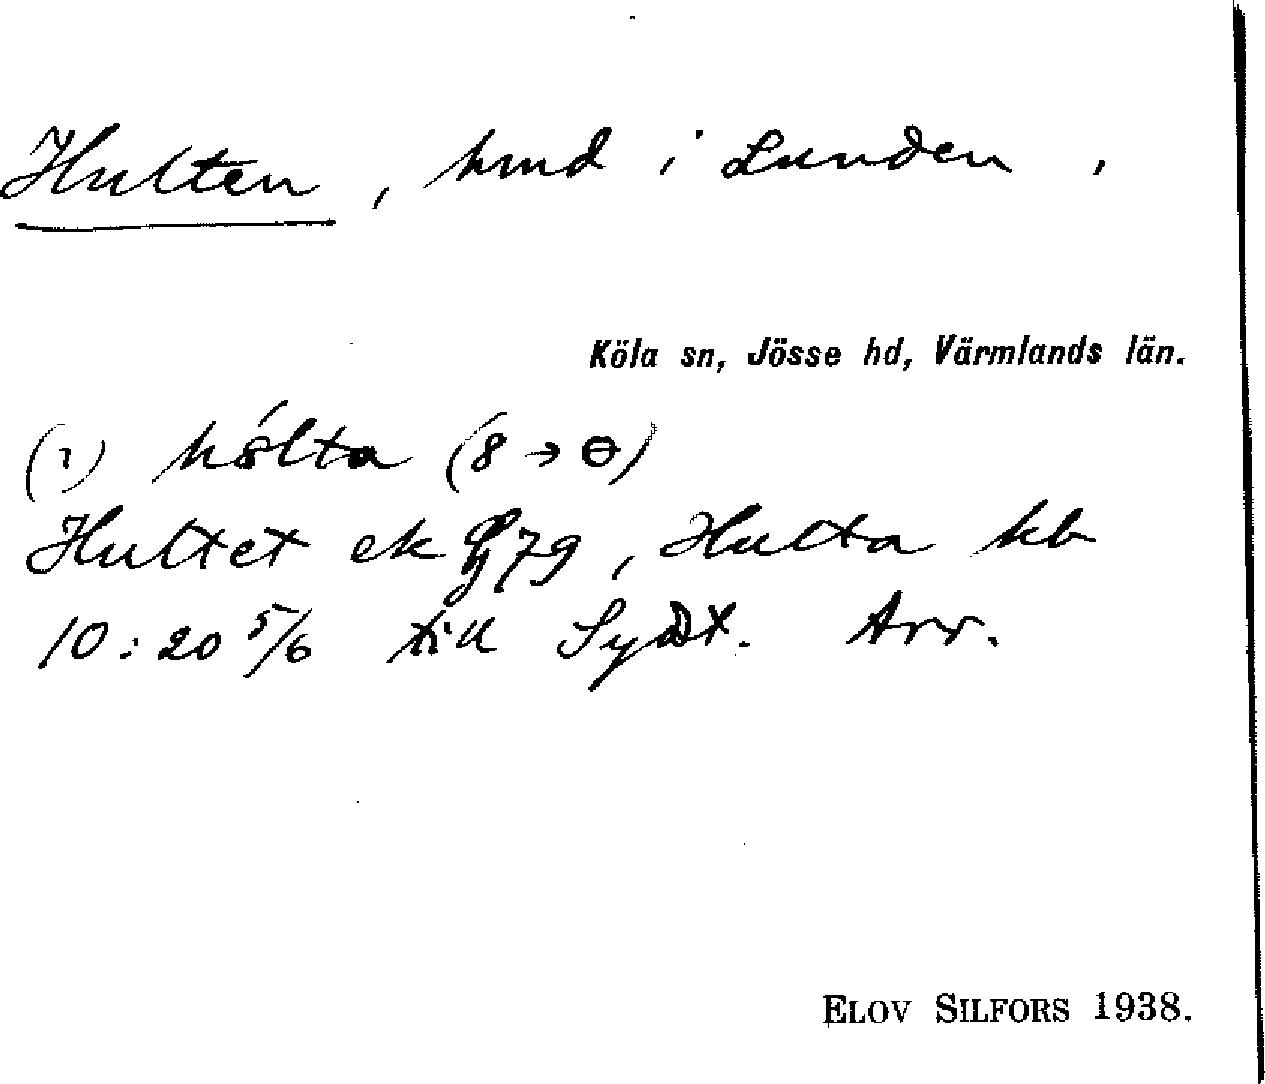 Hulten, hmd i Lunden.
Köla sn, Jösse hd, Värmlands län.
(1) hó̤lta (8 → ɵ)
Hultet ek 79, Hulta kb
10:20 5/6 till Arr.
ELOV SILFORS 1938.